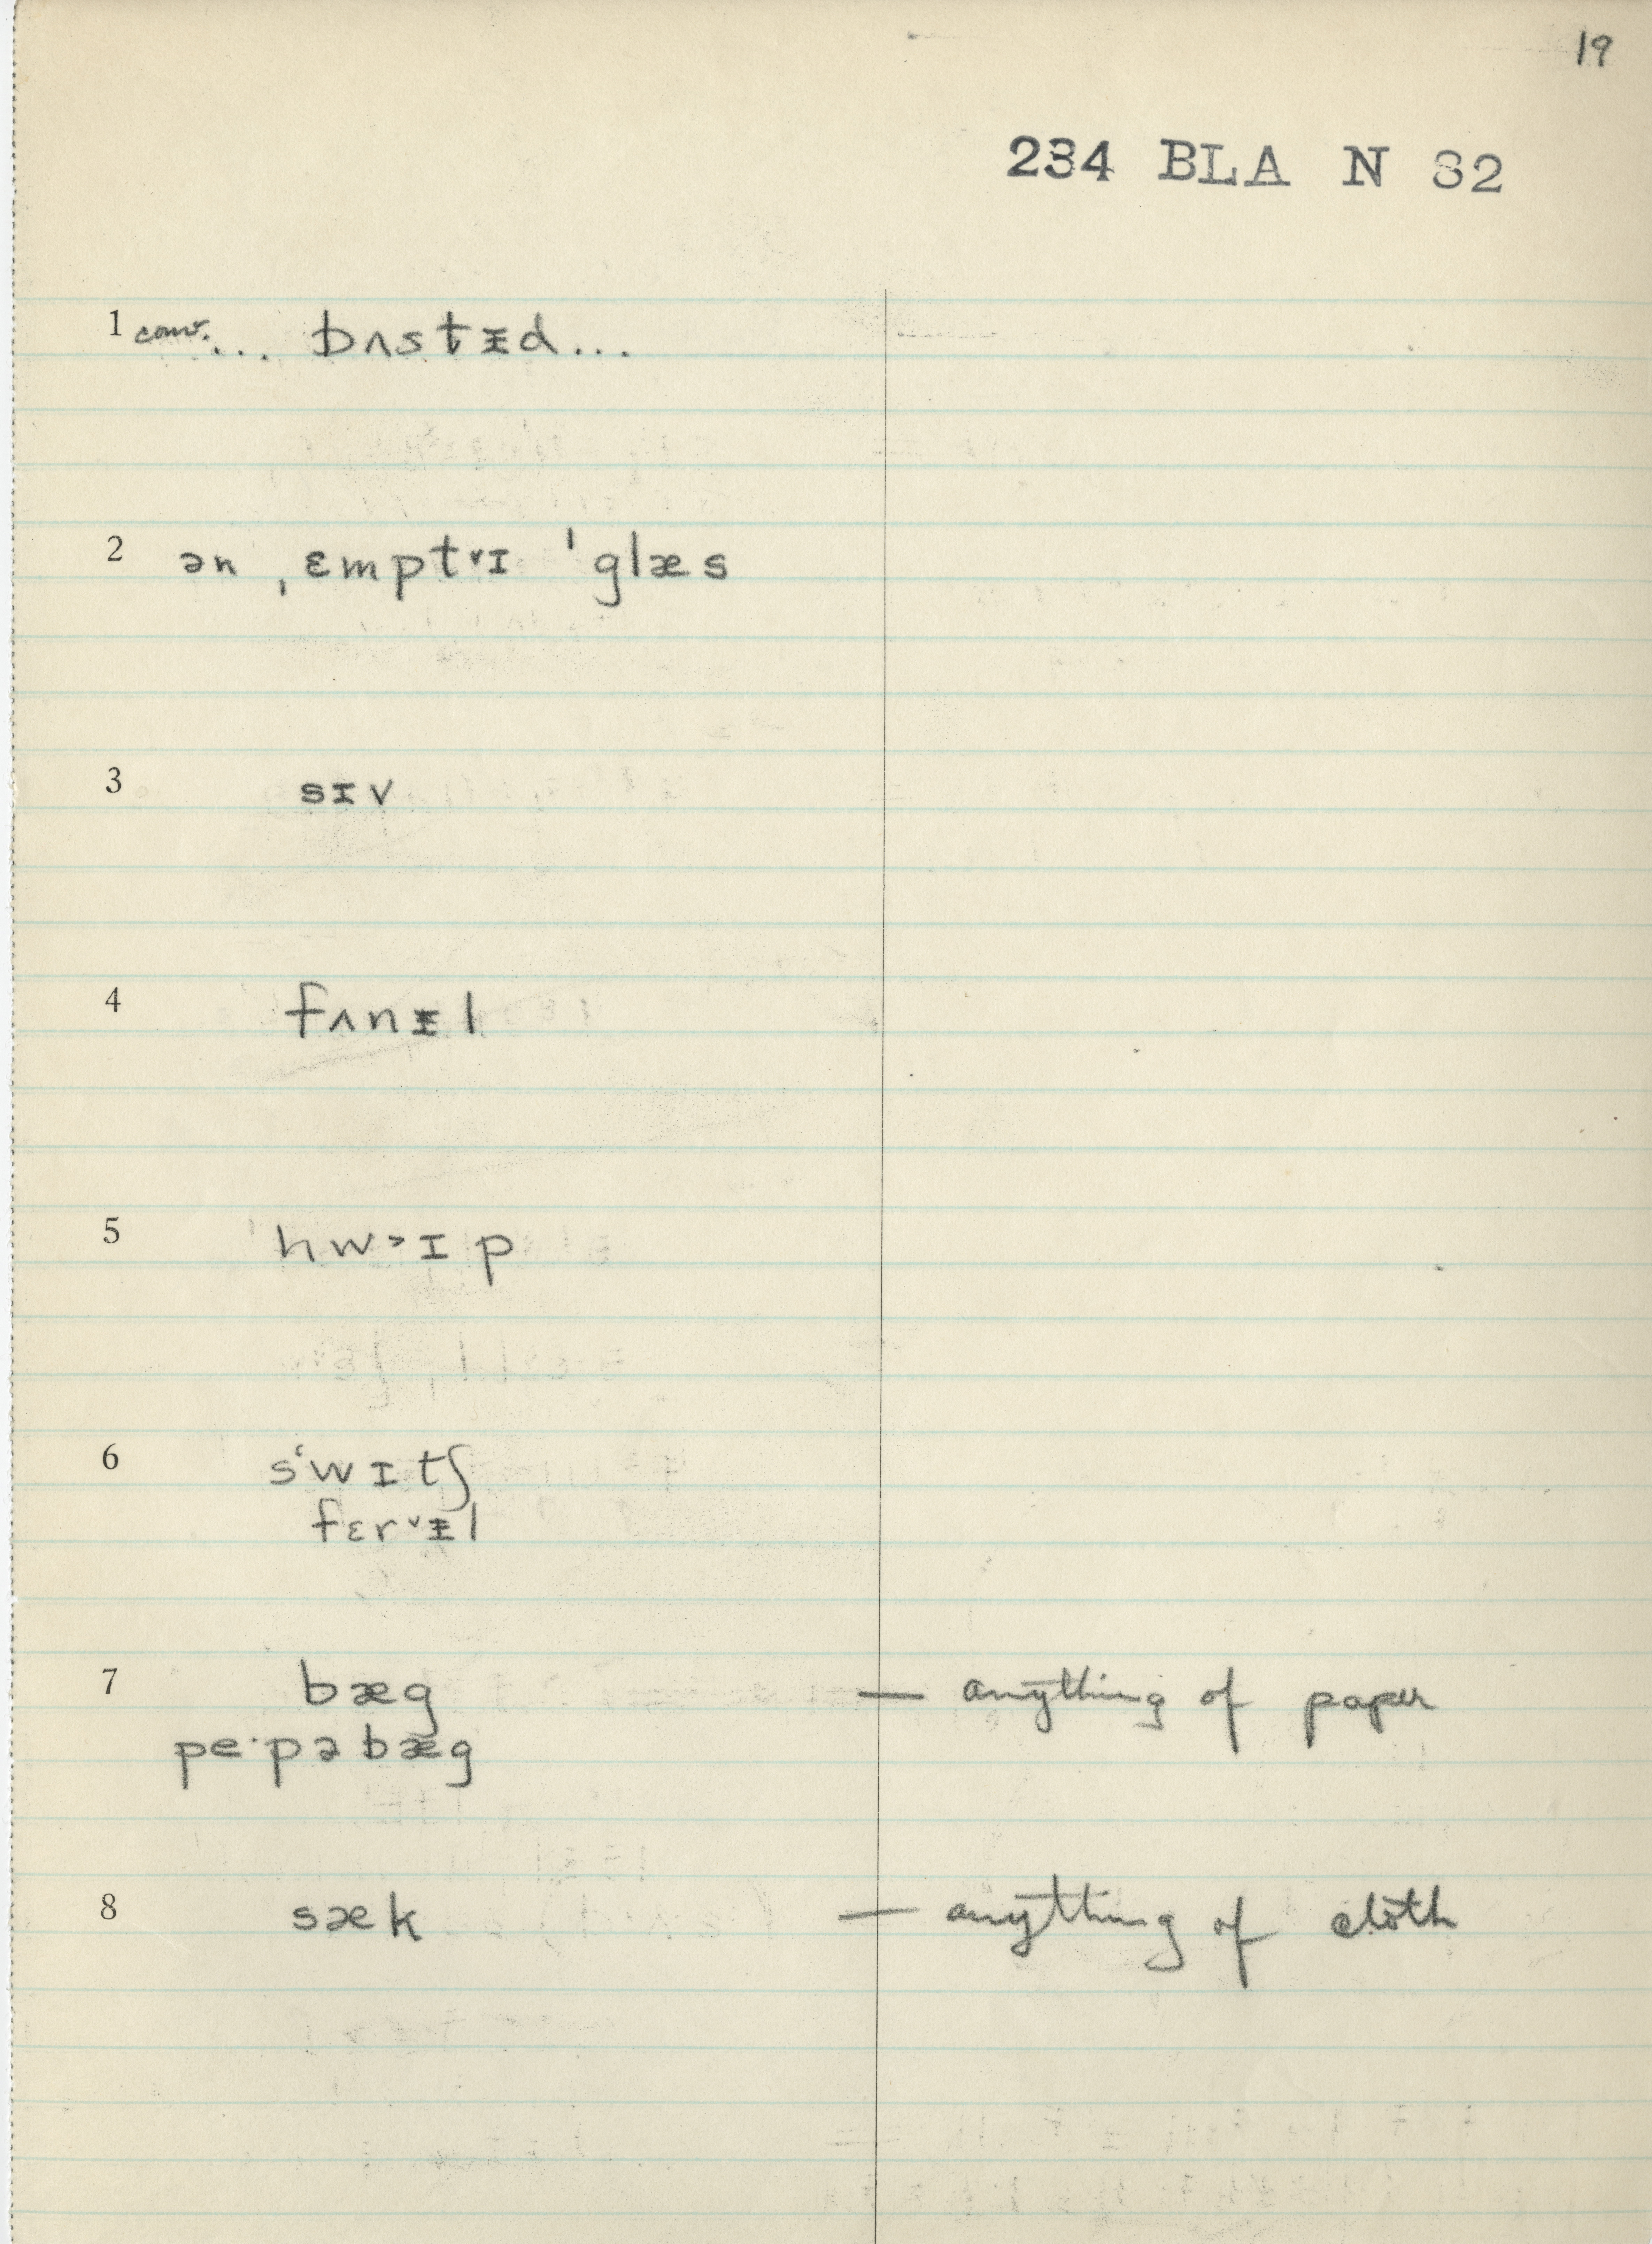 19
234 BLA N 82
1 conv. ... bʌstᵻd...
2 ən ˌɛmptᵛɪ ˈglæs
3 sɪv
4 fʌnᵻl
5 hw˃ɪp
6 sʻwɪtʃ
fɛr˅ᵻl
7 bæg — anything of paper
pe·pəbæg
8 sæk — anything of cloth